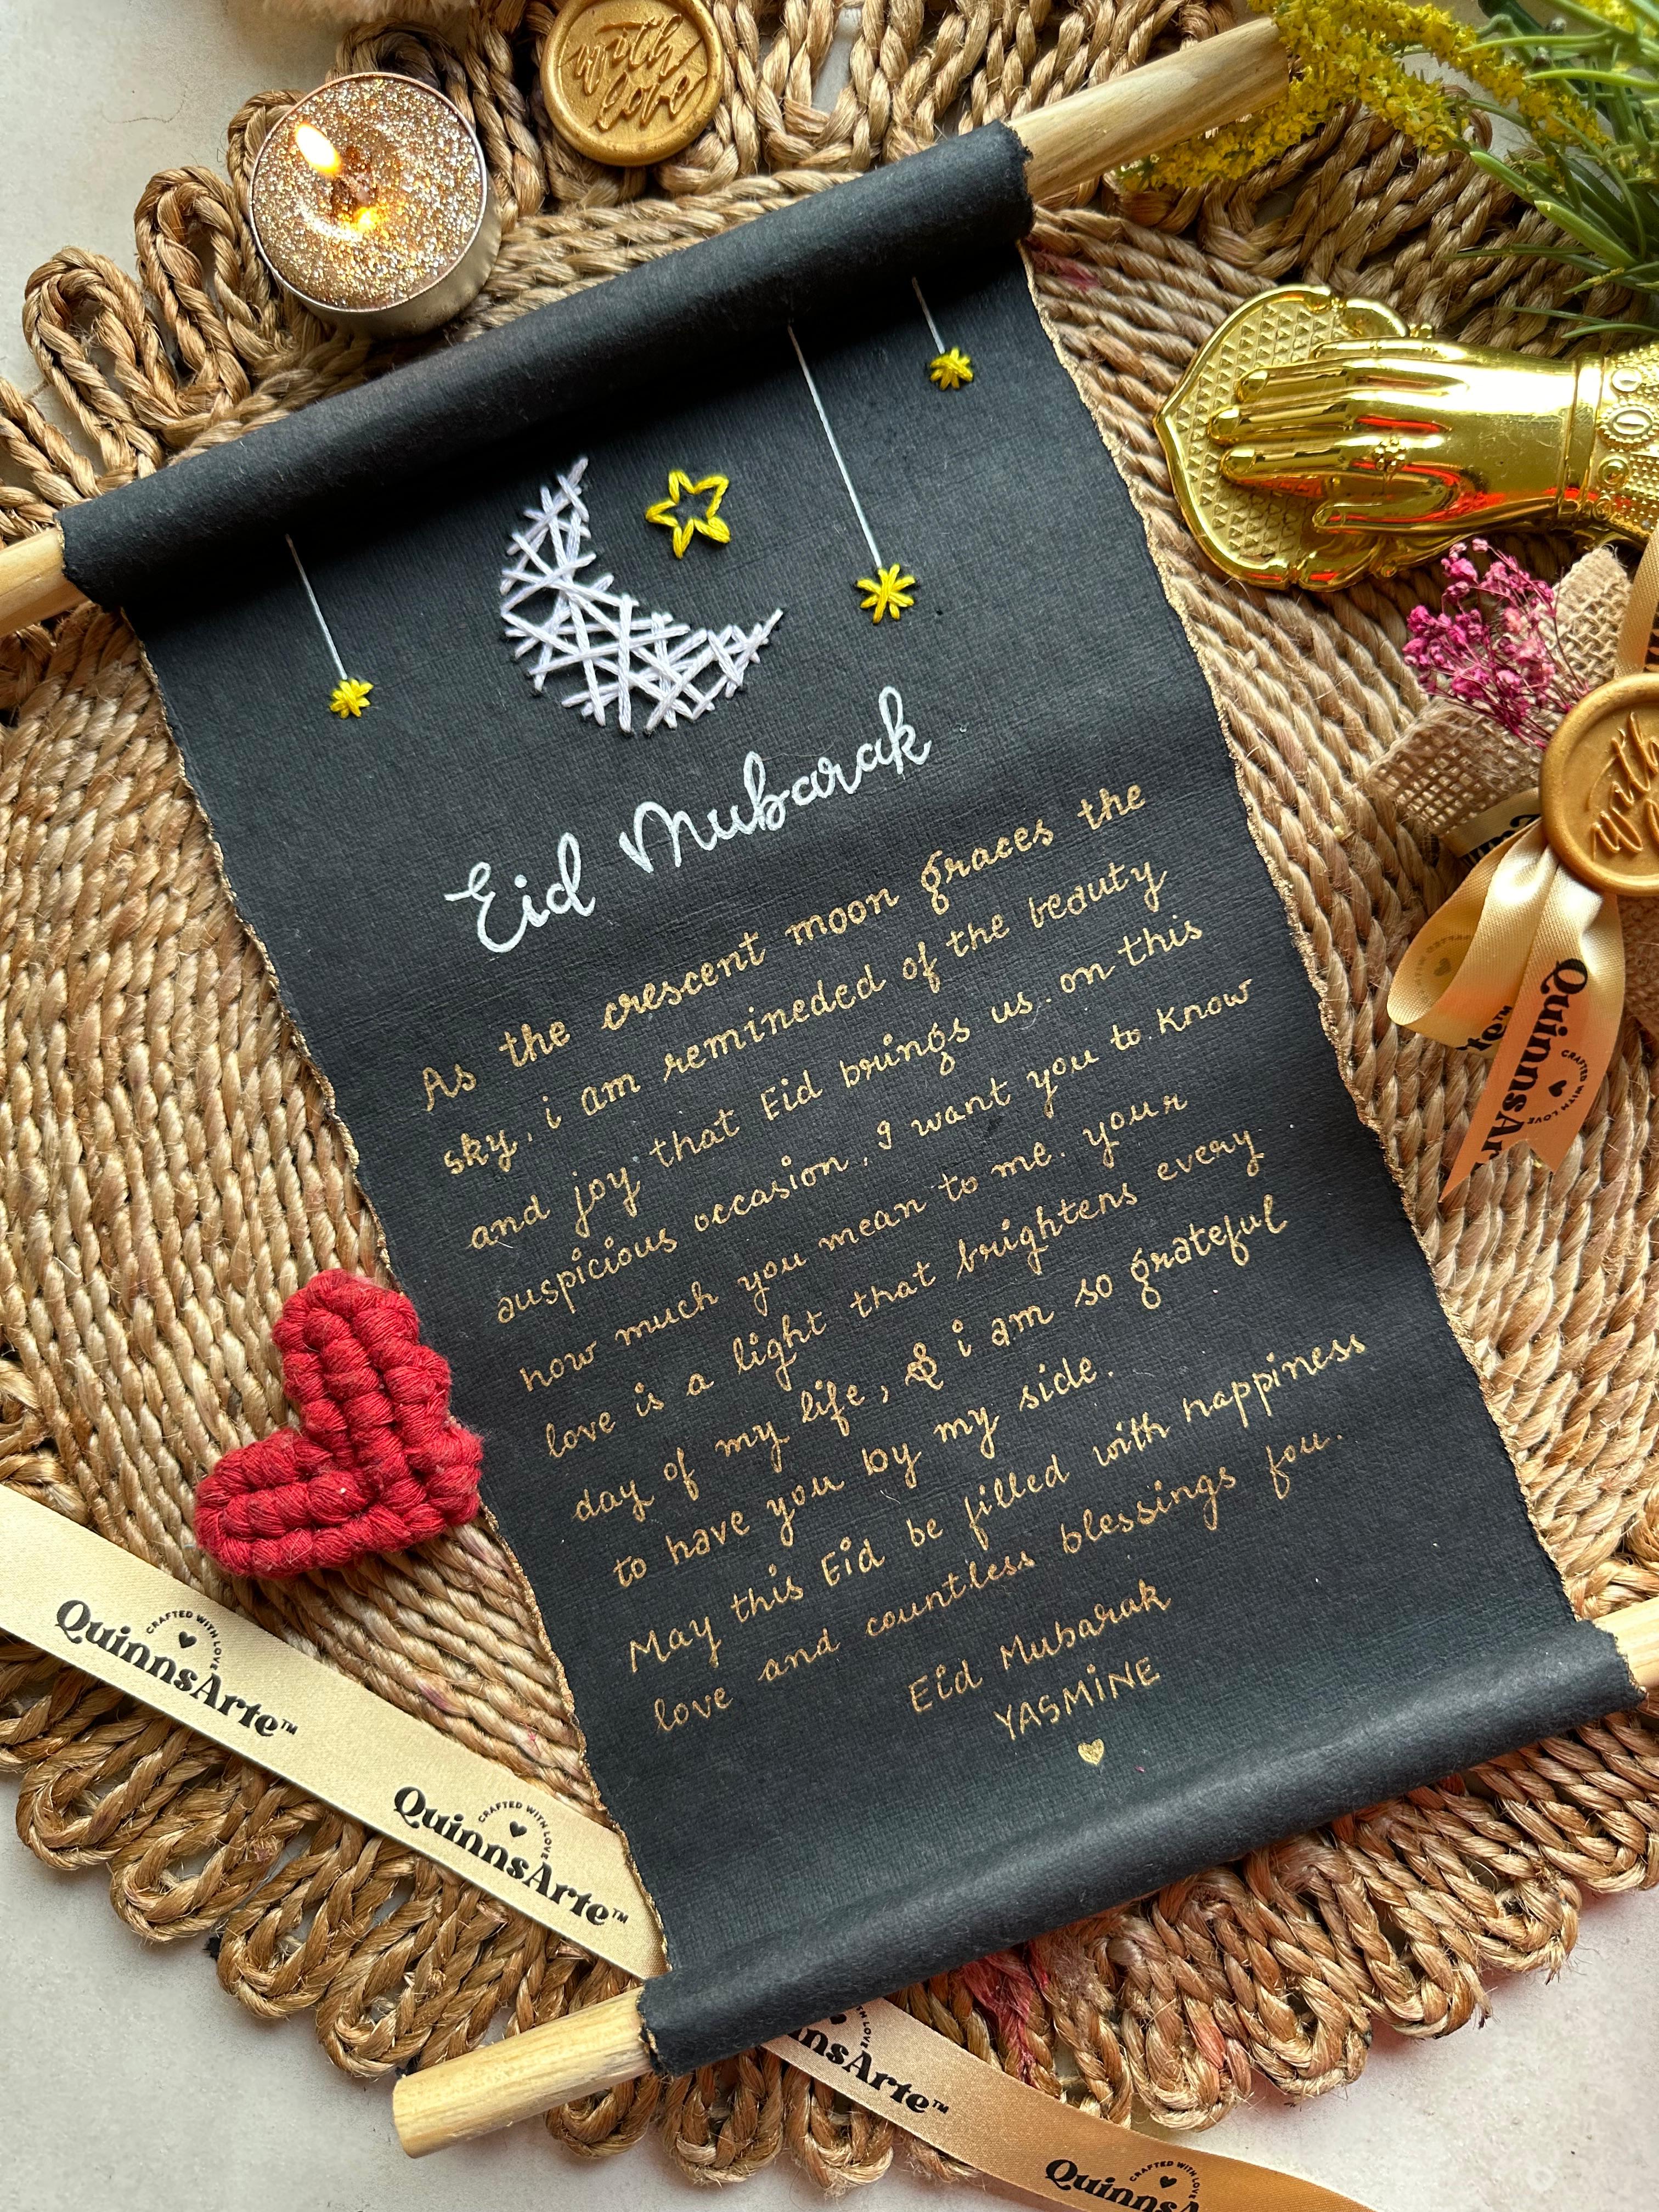 with
love
Eid Mubarak
As the crescent moon graces the
sky, i am remineded of the beauty
and joy that Eid brings us. on this
auspicious occasion, I want you to know
how much you mean to me. your
love is a light that brightens every
day of my life, & i am so grateful
to have you by my side.
May this Eid be filled with happiness
love and countless blessings fou.
Eid Mubarak
YASMINE
with
QuinnsArte
CRAFTED WITH LOVE
CRAFTED WITH LOVE
QuinnsArte™
CRAFTED WITH LOVE
QuinnsArte™
nnsArte™
CRAFTED WITH LOVE
QuinnsA